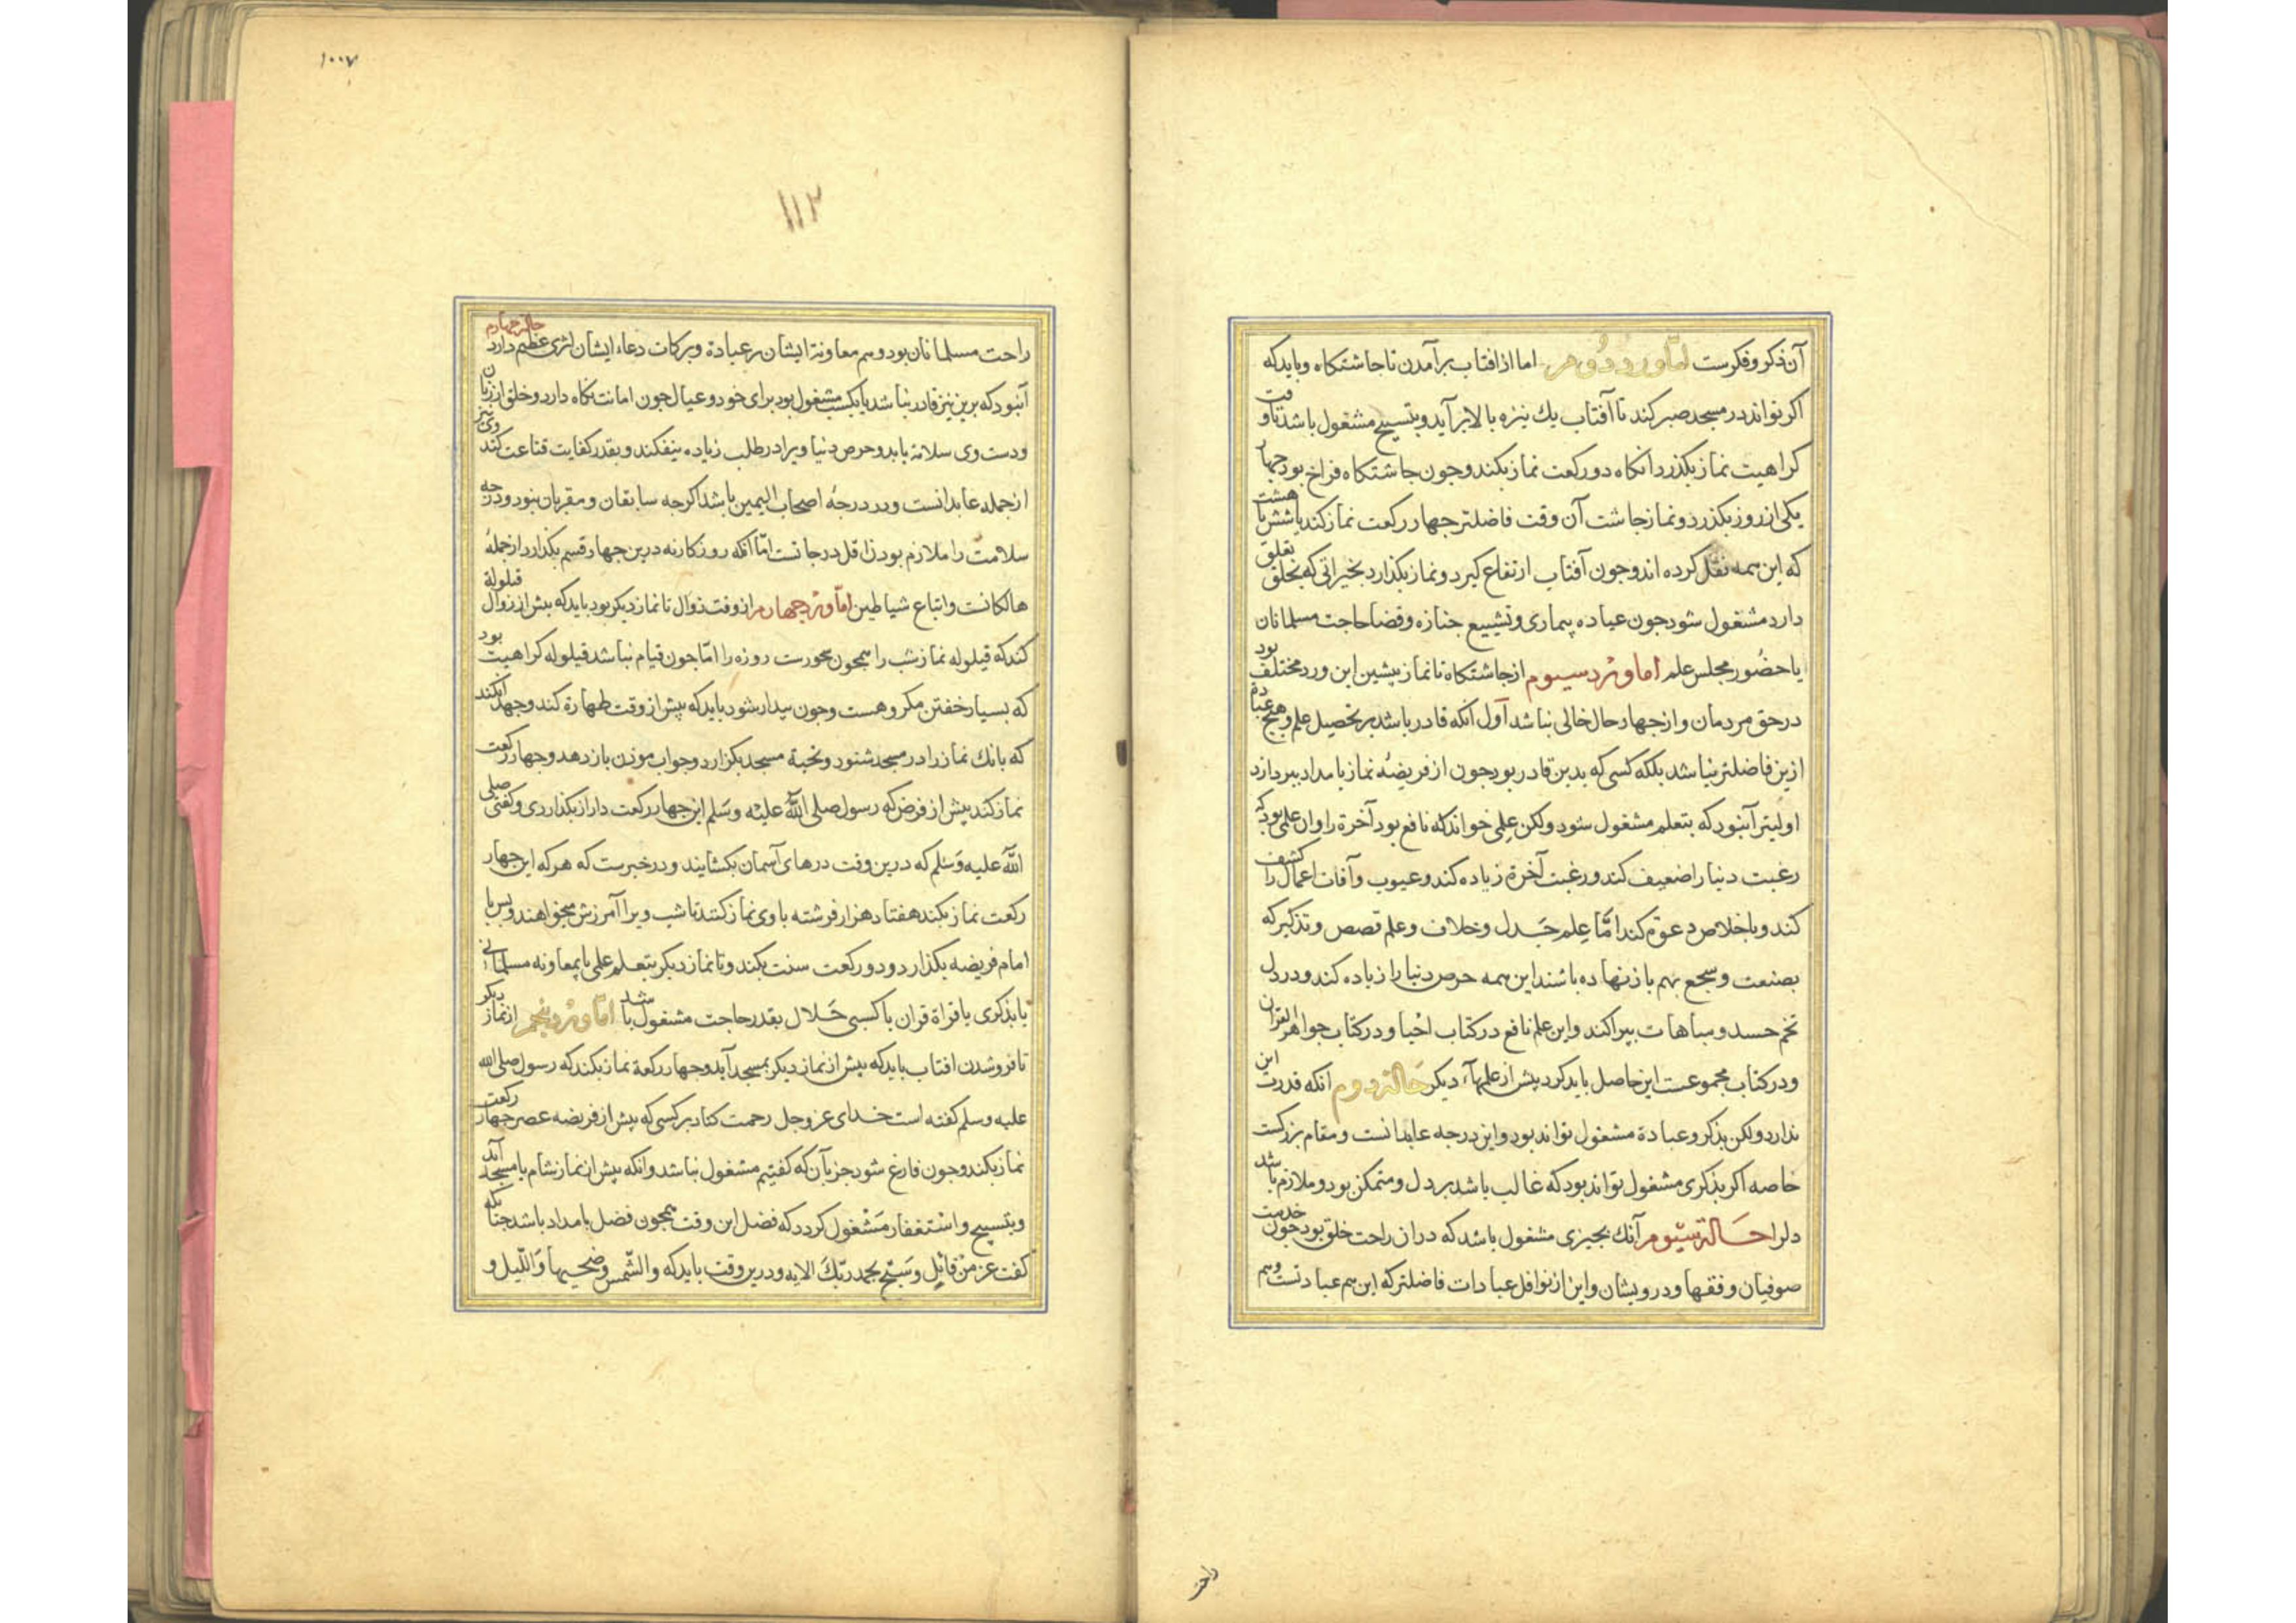 آن ذکر و فکرست اما ورد دوم اما از افتاب برآمدن تا جاشتکاه و باید که
اکر تواند در مسجد صبر کند تا آفتاب یك نیزه بالا برآید و بتسبیح مشغول باشد تا وقت
کراهیت نماز بکذرد انکاه دو رکعت نماز بکند و جون جاشتکاه فراخ بود جهار
یکی از روز بکذرد و نماز جاشت آن وقت فاضلتر جهار رکعت نماز کند یا شش یا هشت
که این همه نقل کرده اند و جون آفتاب ارتفاع کیرد و نماز بکذارد بخیراتی که بخلق تعلق
دارد مشغول شود جون عیاده بیماری و تشییع جنازه و قضا حاجت مسلمانان
یا حضور مجلس علم اما ورد سیوم از جاشتکاه تا نماز پیشین این ورد مختلف بود
در حق مردمان و از جهار حال خالی نباشد آول آنکه قادر باشد بر تحصیل علم و هیچ عبادة
ازین فاضلتر نباشد بلکه کسی که بدین قادر بود جون از فریضهٔ نماز بامداد ببردازد
اولیتر آنبود که بتعلم مشغول شود ولکن علمی خواند که نافع بود آخرة را و ان علمی بود که
رغبت دنیا را ضعیف کند و رغبت آخرة زیاده کند و عیوب و آفات اعمال را کشف
کند و باخلاص دعوة کند امّا عِلم جَدل و خلاف و علم قصص و تذکیر که
بصنعت و سجع بهم باز نهاده باشند این همه حرص دنیا را زیاده کند و در دل
تخم حسد و مباهات بپراکند و این علم نافع در کتاب احیا و در کتاب جواهر القران
و در کتاب مجموعست این حاصل باید کرد پیش از علمهاء دیکر حالة دوم انکه قدرت این
ندارد ولکن بذکر و عبادة مشغول تواند بود و این درجه عابدانست و مقام بزرکست
خاصه اکر بذکری مشغول تواند بود که غالب باشد بر دل و متمکن بود و ملازم باشد
دلرا حالة سیّوم آنك بجیزی مشغول باشد که در ان راحت خلق بود جون خدمت
صوفیان و فقها و درویشان و این از نوافل عبادات فاضلتر که این هم عبادتست و هم
راحت
۱۰۰۷
۱۱۲
راحت مسلمانان بود و هم معاونة ایشان بر عبادة و برکات دعاء ایشان اثری عظیم دارد حالة جهارم
آنبود که برین نیز قادر نباشد یا بکسب مشغول بود برای خود و عیال جون امانت نکاه دارد و خلق از زبان
و دست وی سلامة یابد و حرص دنیا ویرا در طلب زیاده نیفکند و بقدر کفایت قناعت کند وی نیز
از جمله عابدانست و در درجهٔ اصحاب الیمین باشد اکرجه سابقان و مقربان نبود و درجه
سلامت را ملازم بودن اقل درجاتست امّا آنکه روزکار نه درین جهار قسم بکذارد از جملهٔ
هالکانست و اتباع شیاطین امّا ورد جهارم از وقت زوال تا نماز دیکر بود باید که پیش از زوال قیلولة
کند که قیلوله نماز شب را همجون سحورست روزه را امّا جون قیام نباشد قیلوله کراهیت بود
که بسیار خفتن مکروهست و جون بیدار شود باید که پیش از وقت طهارة کند و جهد آن کند
که بانك نماز را در مسجد شنود و تحیة مسجد بکزارد و جواب موذن باز دهد و جهار رکعت
نماز کند پیش از فرض که رسول صلی الله علیه وسَلم این جهار رکعت دراز بکذاردی و کفتی صلی
الله علیه وَسلم که درین وقت درهای آسمان بکشایند و در خبرست که هر که این جهار
رکعت نماز بکند هفتاد هزار فرشته با وی نماز کنند تا شب ویرا آمرزش میخواهند و پس با
امام فریضه بکذارد و دو رکعت سنت بکند و تا نماز دیکر بتعلم علمی یا بمعاونه مسلمانی
یا بذکری یا قراة قران یا کسبی حَلال بقدر حاجت مشغول باشد امّا ورد پنجم از نماز دیکر
تا فرو شدن افتاب باید که پیش از نماز دیکر بمسجد آید و جهار رکعة نماز بکند که رسول صلی الله
علیه وسلم کفته است خدای عز وجل رحمت کناد بر کسی که پیش از فریضه عصر جهار رکعت
نماز بکند و جون فارغ شود جز بآن که کفتیم مشغول نباشد و انکه پیش از نماز شام با مسجد آید
و بتسبیح و استغفار مَشغول کردد که فضل این وقت همجون فضل بامداد باشد جنانکه
کفت عز من قائِل وَسَبّح بحمد ربّكَ الایه و درین وقت باید که والشّمس وضحیها وَاللّیل و